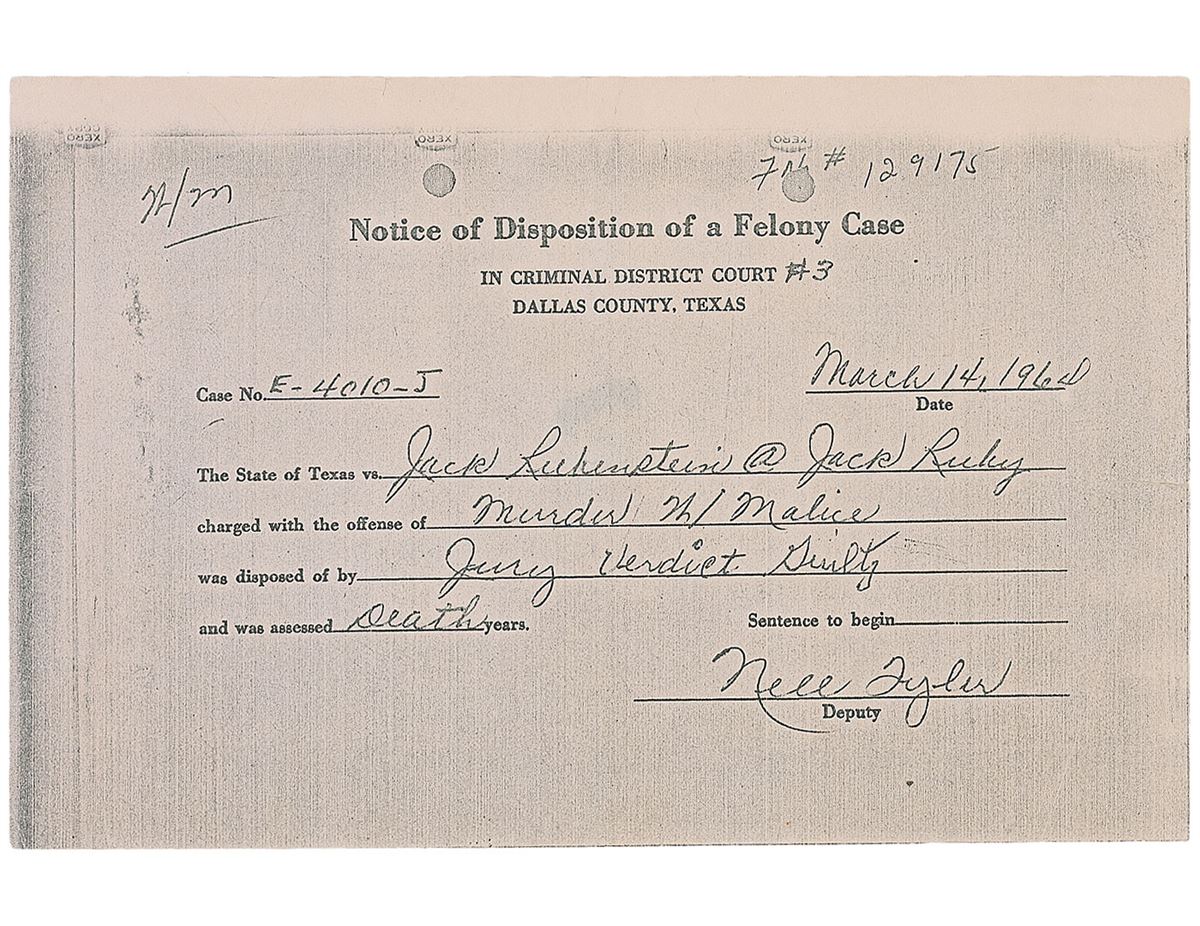 XERO COPY XERO XERO
W/m FPB # 129175
Notice of Disposition of a Felony Case
IN CRIMINAL DISTRICT COURT #3
DALLAS COUNTY, TEXAS
Case No. E-4010-J March 14, 1964
Date
The State of Texas vs. Jack Rubenstein @ Jack Ruby
charged with the offense of Murder W/ Malice
was disposed of by Jury Verdict Guilty
and was assessed Death years. Sentence to begin
Nell Tyler
Deputy